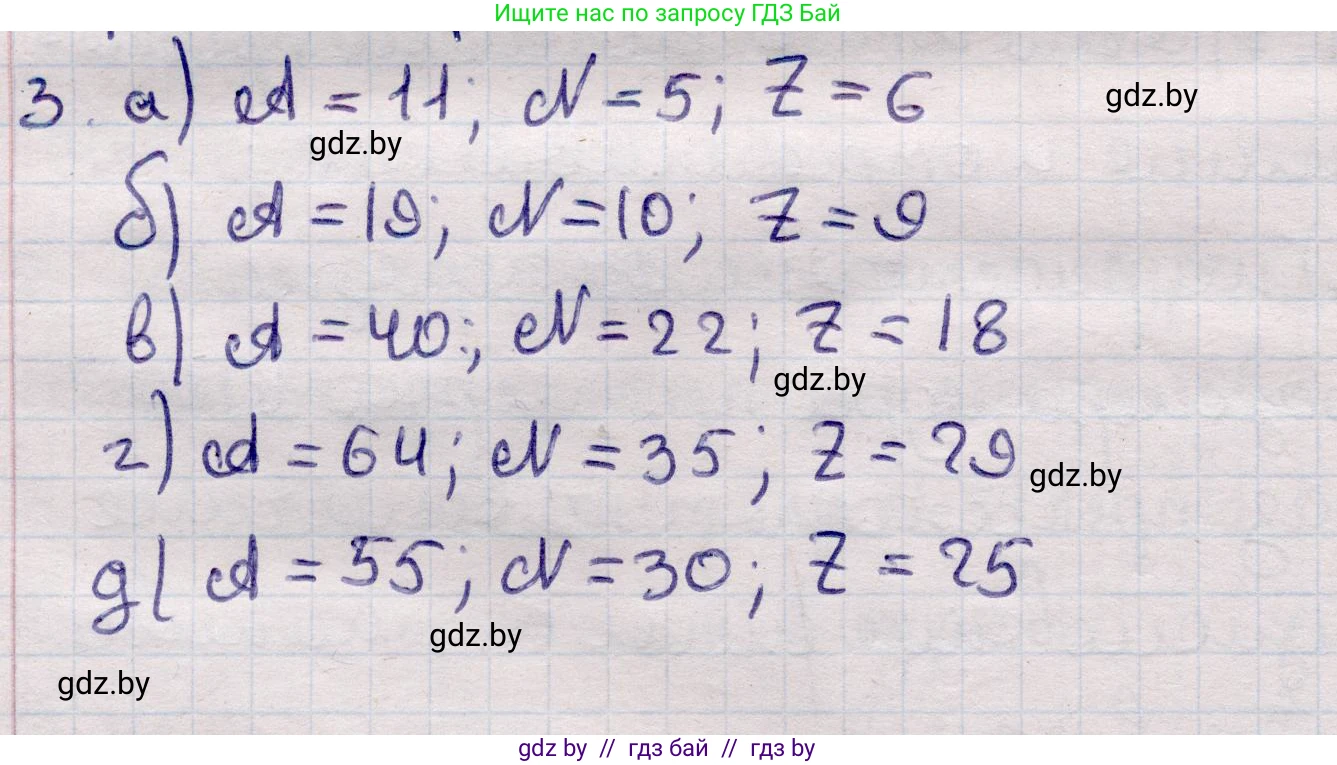 Ищите нас по запросу ГДЗ Бай
3. а) A = 11; N = 5; Z = 6
gdz.by
gdz.by
б) A = 19; N = 10; Z = 9
в) A = 40; N = 22; Z = 18
gdz.by
г) A = 64; N = 35; Z = 29
gdz.by
д) A = 55; N = 30; Z = 25
gdz.by
gdz.by
gdz by // гдз бай // гдз by